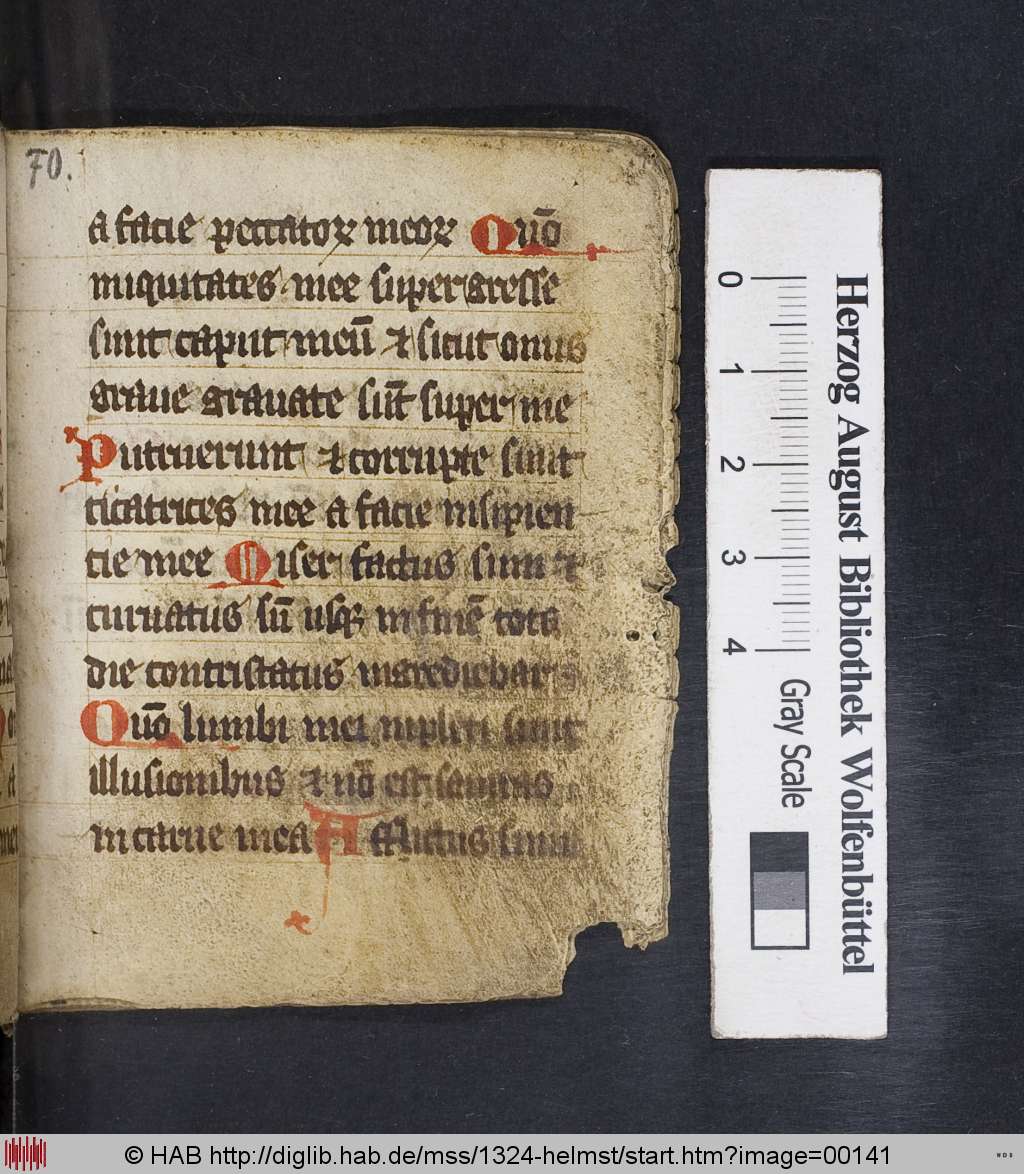 70.
a facie peccatoꝝ meoꝝ Quō
iniquitates mee supergresse
sunt caput meū ⁊ sicut onus
graue grauate sūt super me
Putruerunt ⁊ corrupte sunt
cicatrices mee a facie insipien
tie mee Miser factus sum ⁊
curuatus sū usqꝫ in finē tota
die contristatus ingrediebar
Quō lumbi mei inpleti sunt
illusionibus ⁊ nō est sanitas
in carne mea Afflictus sum
0
1
2
3
4
Gray Scale
Herzog August Bibliothek Wolfenbüttel
© HAB http://diglib.hab.de/mss/1324-helmst/start.htm?image=00141